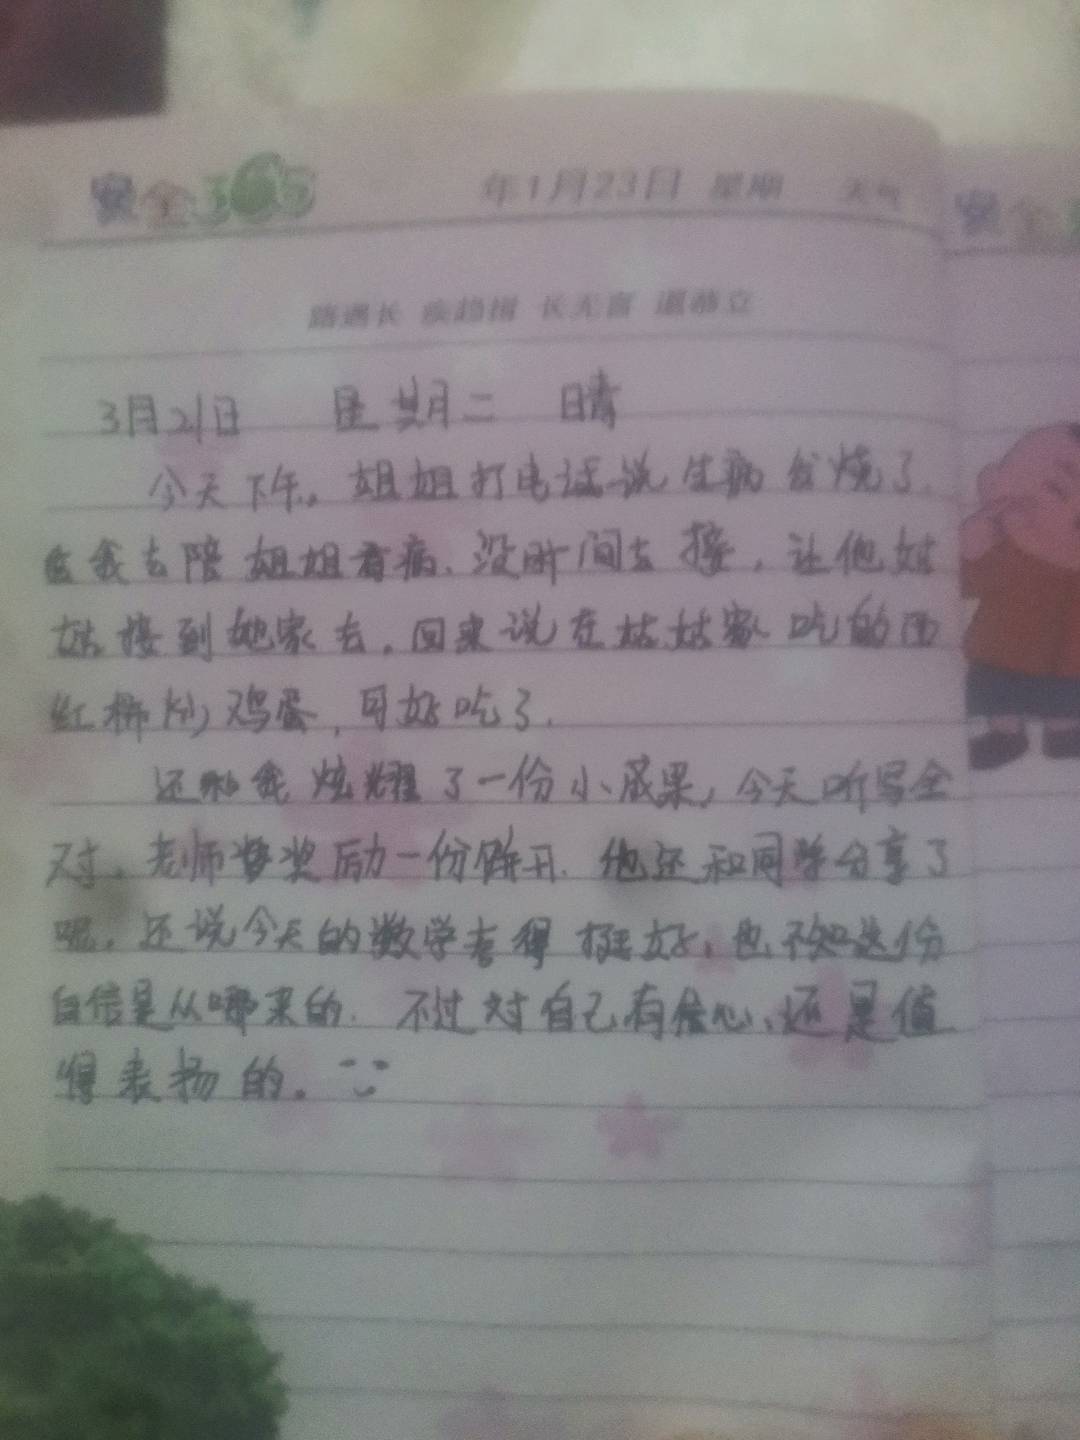 安全365 年1月23日 星期 天气 安全
路遇长 疾趋揖 长无言 退恭立
3月21日 星期二 晴
今天下午。姐姐打电话说生病发烧了.
我去陪姐姐看病、没时间去接，让他姑
姑接到她家去，回来说在姑姑家吃的西
红柿炒鸡蛋，可好吃了.
还和我炫耀了一份小成果，今天听写全
对，老师奖励一份饼干. 他还和同学分享了
呢，还说今天的数学考得挺好，也不知这份
自信是从哪来的. 不过对自己有信心、还是值
得表扬的。